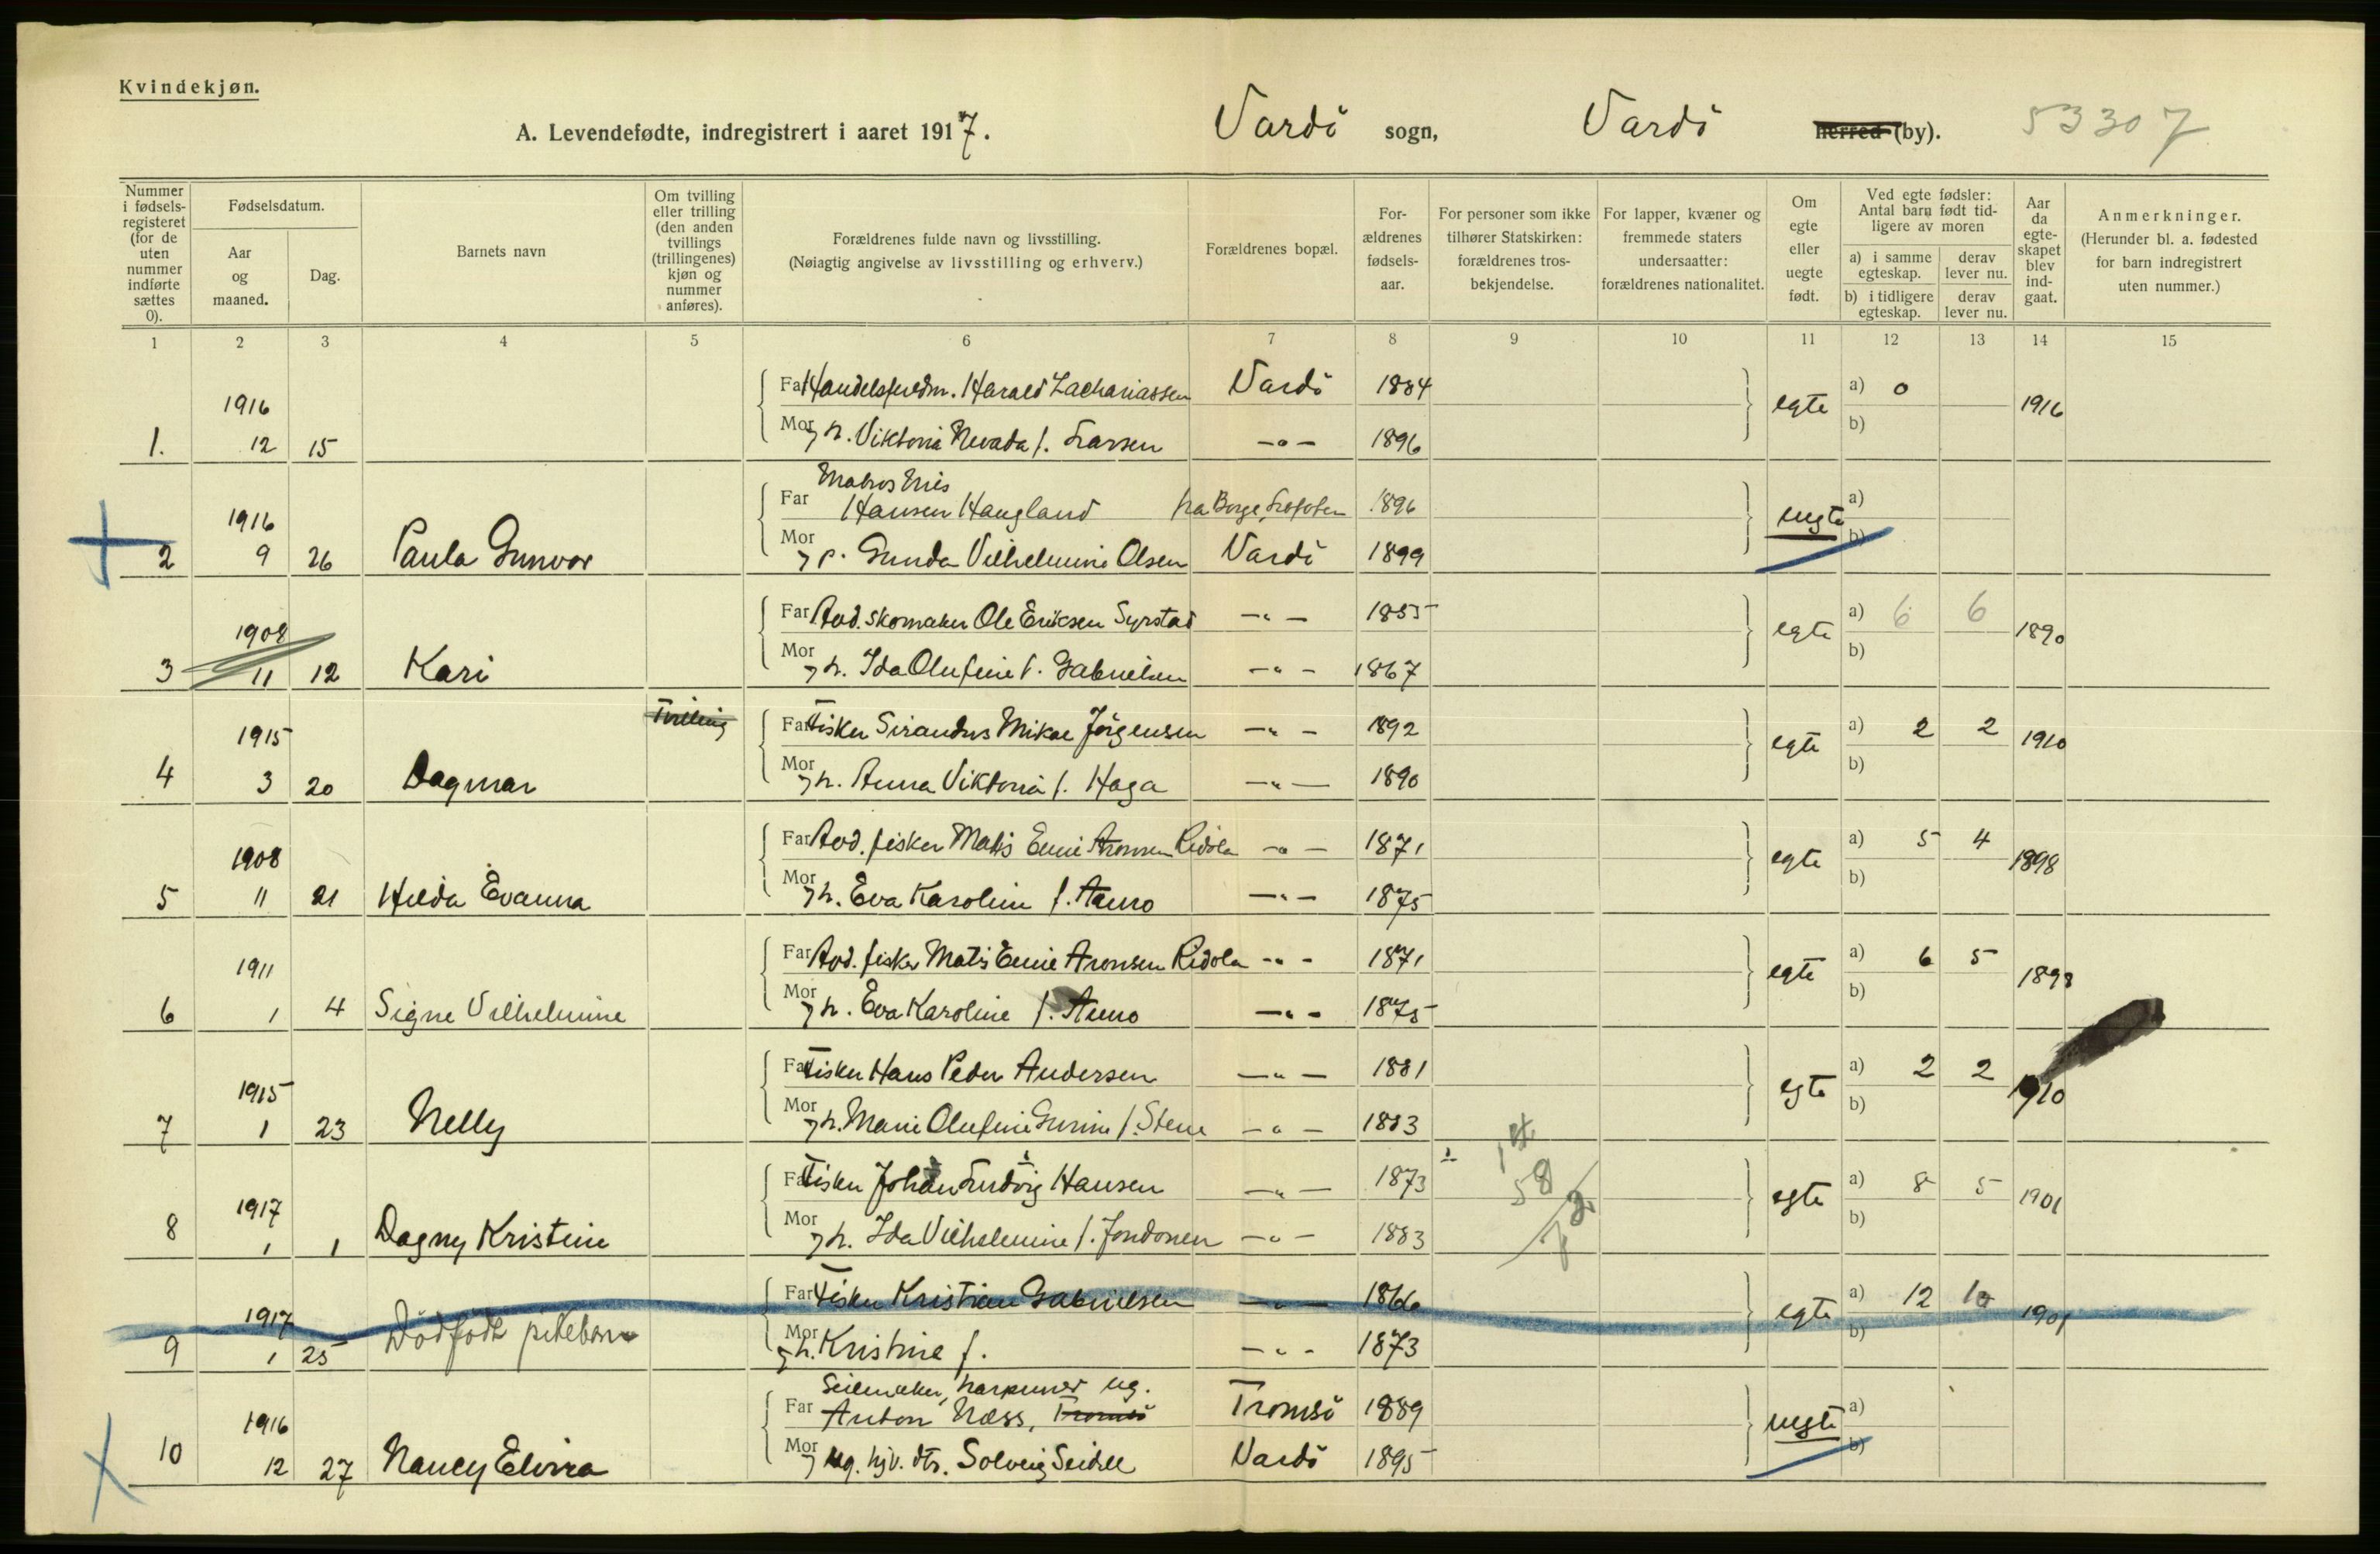 Kvindekjøn.
A. Levendefødte, indregistrert i aaret 1917. Vardö sogn, Vardö herred (by). 53307
Nummer i fødselsregisteret (for de uten nummer indførte sættes 0).
Fødselsdatum.
Aar og maaned.
Dag.
Barnets navn
Om tvilling eller trilling (den anden tvillings (trillingenes) kjøn og nummer anføres).
Forældrenes fulde navn og livsstilling.
(Nøiagtig angivelse av livsstilling og erhverv.)
Forældrenes bopæl.
Forældrenes fødselsaar.
For personer som ikke tilhører Statskirken: forældrenes trosbekjendelse.
For lapper, kvæner og fremmede staters undersaatter: forældrenes nationalitet.
Om egte eller uegte født.
Ved egte fødsler: Antal barn født tidligere av moren
a) i samme egteskap.
derav lever nu.
b) i tidligere egteskap.
derav lever nu.
Aar da egteskapet blev indgaat.
Anmerkninger.
(Herunder bl. a. fødested for barn indregistrert uten nummer.)
1 2 3 4 5 6 7 8 9 10 11 12 13 14 15
1916 Far Harald Zachariassen Vardö 1884 egte a) 0 1916
1. 12 15 Mor h. Viktoria Nevada f. Larsen —"— 1896 b)
Matros Nils
1916 Far Hansen Haugland fra Borge, Lofoten 1896 uegte a)
2 9 26 Paula Gunvor Mor p. Gunda Vilhelmine Olsen Vardö 1899 b)
1908 Far Avd. skomaker Ole Eriksen Syrstad —"— 1855 egte a) 6 6 1890
3 11 12 Kari Mor h. Ida Olufine f. Gabrielsen —"— 1867 b)
Tvilling
1915 Far Fisker Sirandus Mikae Jörgensen —"— 1892 egte a) 2 2 1910
4 3 20 Dagmar Mor h. Anna Viktoria f. Haga —"— 1890 b)
1908 Far Avd. fisker Matis Enne Aronsen Ridola —"— 1871 egte a) 5 4 1898
5 11 21 Hilda Evanna Mor h. Eva Karoline f. Auno —"— 1875 b)
1911 Far Avd. fisker Matis Enne Aronsen Ridola —"— 1871 egte a) 6 5 1898
6 1 4 Signe Vilhelmine Mor h. Eva Karoline f. Auno —"— 1875 b)
1915 Far Fisker Hans Peder Andersen —"— 1881 egte a) 2 2 1910
7 1 23 Nelly Mor h. Marie Olufine Gurine f. Stene —"— 1883 b)
1917 Far Fisker Johan Ludvig Hansen —"— 1873 58 egte a) 8 5 1901
8 1 1 Dagny Kristine Mor h. Ida Vilhelmine f. Jondonen —"— 1883 b)
1917 Far Fisker Kristian Gabrielsen —"— 1866 egte a) 12 10 1901
9 1 25 Dödfödt pikebarn Mor h. Kristine f. —"— 1873 b)
Seilmaker, harpuner ug.
1916 Far Anton Næss, Tromsö Tromsö 1889 uegte a)
10 12 27 Nancy Elvira Mor ug. hjv. dtr. Solveig Seidel Vardö 1895 b)